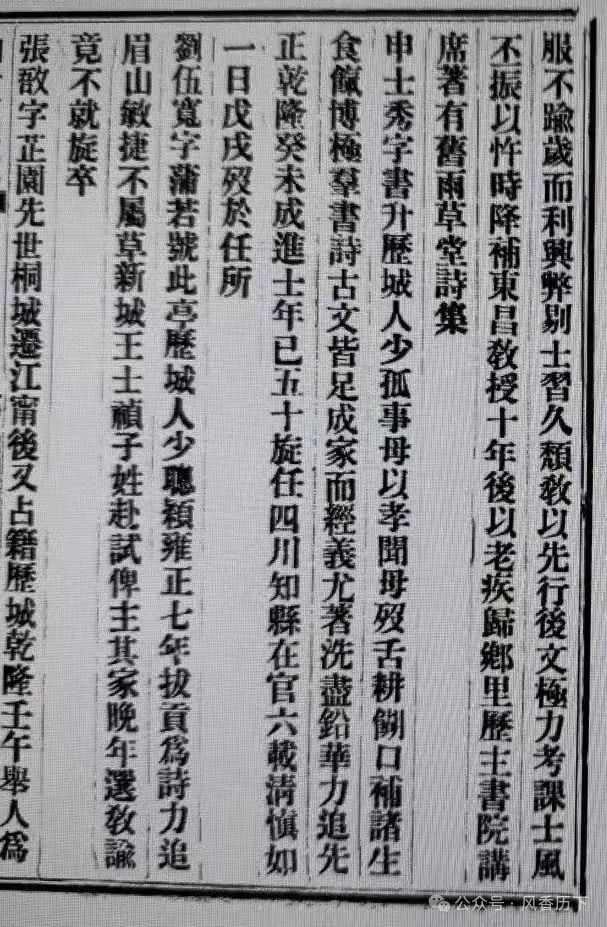 服不踰歲而利興弊剔士習久頹敎以先行後文極力考課士風
不振以忤時降補東昌敎授十年後以老疾歸鄉里歷主書院講
席著有舊雨草堂詩集
申士秀字書升歷城人少孤事母以孝聞母歿舌耕餬口補諸生
食餼博極羣書詩古文皆足成家而經義尤著洗盡鉛華力追先
正乾隆癸未成進士年已五十旋任四川知縣在官六載淸愼如
一日戊戌歿於任所
劉伍寬字蒲若號此亭歷城人少聰穎雍正七年拔貢爲詩力追
眉山敏捷不屬草新城王士禎子姓赴試俾主其家晚年選敎諭
竟不就旋卒
張敔字芷園先世桐城遷江甯後又占籍歷城乾隆壬午舉人爲
公众号·风香历下